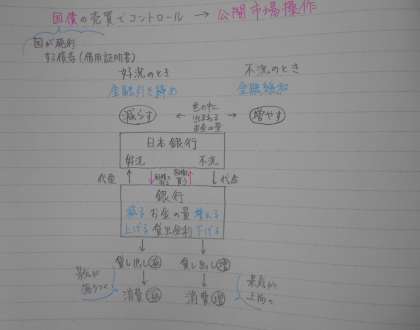 国債の売買でコントロール → 公開市場操作
国が発行
する債券(借用証明書)
好況のとき 不況のとき
金融引き締め 金融緩和
減らす ← 世の中に → 増やす
出回る
お金の量
日本銀行
好況 不況
代金 ↑ ↓ 国債を売る 国債を買う ↑ ↓ 代金
銀行
減る お金の量 増える
上げる 貸出金利 下げる
↓ ↓
貸し出し減 貸し出し増
↓ ↓
消費減 消費増
景気が
景気が